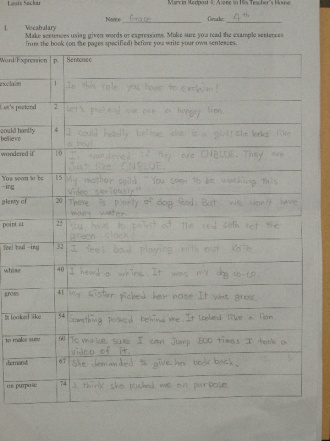 Louis Sachar Marvin Redpost 4: Alone in His Teacher's House
Name Grace Grade: 4th
1. Vocabulary
Make sentences using given words or expressions. Make sure you read the example sentences
from the book (on the pages specified) before you write your own sentences.
Word/Expression p. Sentence
exclaim 1 In this role you have to exclaim!
Let's pretend 2 Let's pretend we are a hungry lion.
could hardly believe 4 I could hardly believe she is a girl! She looks like
a boy!
wondered if 10 I wondered if they are CNBLUE. They are
just like CNBLUE
You seem to be -ing 15 My mother said "You seem to be watching this
video seriously"
plenty of 20 There is plenty of dog food. But we don't have
many water.
point at 25 You have to point at the red sofa not the
green clock!
feel bad -ing 32 I feel bad playing with our
whine 40 I heard a whine. It was my dog
gross 41 My sister picked her nose It was gross.
It looked like 54 Something passed behind me. It looked like a lion.
to make sure 60 To make sure I can jump 200 times I took a
video of it.
demand 67 She demanded to give her book back.
on purpose 74 I think she pushed me on purpose